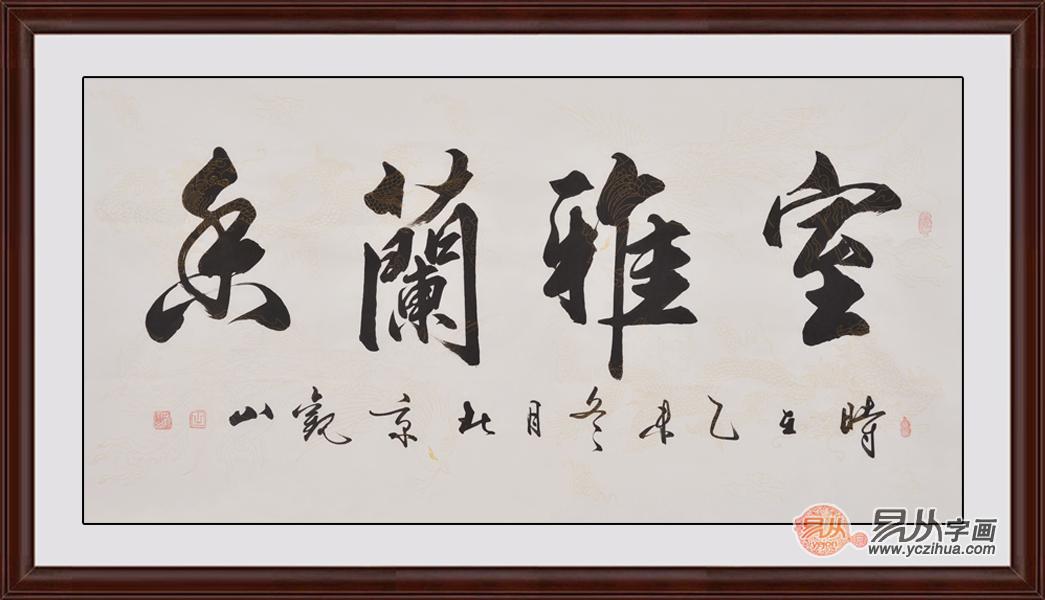 室雅蘭香
時在乙未冬月北京觀山
易从字画
www.yczihua.com